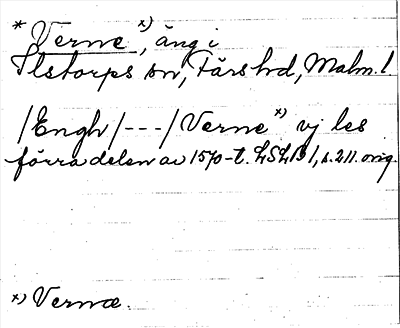 * Verne x), äng i
Ilstorps sn, Färs hd, Malm. l.
/Engh/---/Verne x) vj les
förra delen av 1570-t. LSLB 1, s. 211. orig.
x) Vernæ.